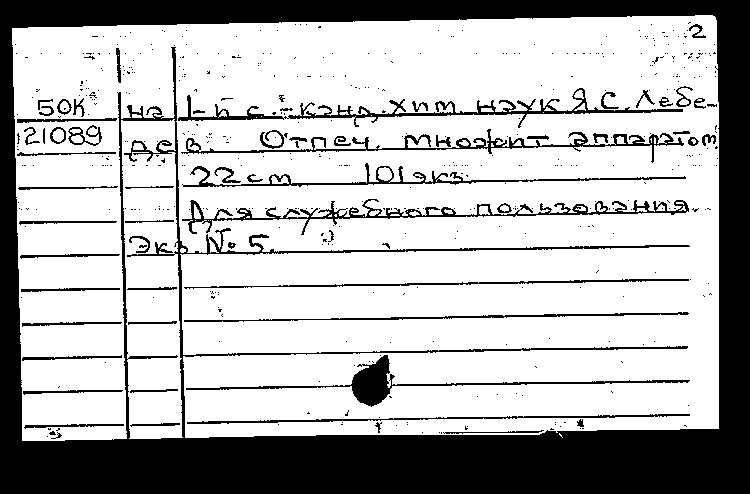 2
50К на 1-й с.-канд. хим. наук Я.С. Лебе-
21089 дев. Отпеч. множит. аппаратом
22 см 101 экз.
Для служебного пользования.
Экз. № 5.